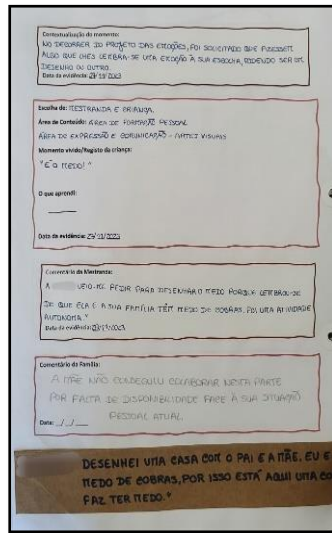 Contextualização do momento:
NO DECORRER DO PROJETO DAS EMOÇÕES, FOI SOLICITADO QUE FIZESSEM
ALGO QUE LHES LEMBRA-SE UMA EMOÇÃO À SUA ESCOLHA, PODENDO SER UM
DESENHO OU OUTRO.
Data da evidência: /11/2023
Escolha de: MESTRANDA E CRIANÇA.
Área de Conteúdo: ÁREA DE FORMAÇÃO PESSOAL
ÁREA DE EXPRESSÃO E COMUNICAÇÃO - ARTES VISUAIS
Momento vivido/Registo da criança:
"É O MEDO!"
O que aprendi:
Data da evidência: /11/2023
Comentário da Mestranda:
A VEIO-ME PEDIR PARA DESENHAR O MEDO PORQUE LEMBROU-SE
DE QUE ELA E A SUA FAMÍLIA TÊM MEDO DE COBRAS. FOI UMA ATIVIDADE
AUTÓNOMA."
Data da evidência: /11/2023
Comentário da Família:
A MÃE NÃO CONSEGUIU COLABORAR NESTA PARTE
POR FALTA DE DISPONIBILIDADE FACE À SUA SITUAÇÃO
PESSOAL ATUAL.
Data: __/__/__
DESENHEI UMA CASA COM O PAI E A MÃE. EU E
MEDO DE COBRAS, POR ISSO ESTÁ AQUI UMA CO
FAZ TER MEDO."